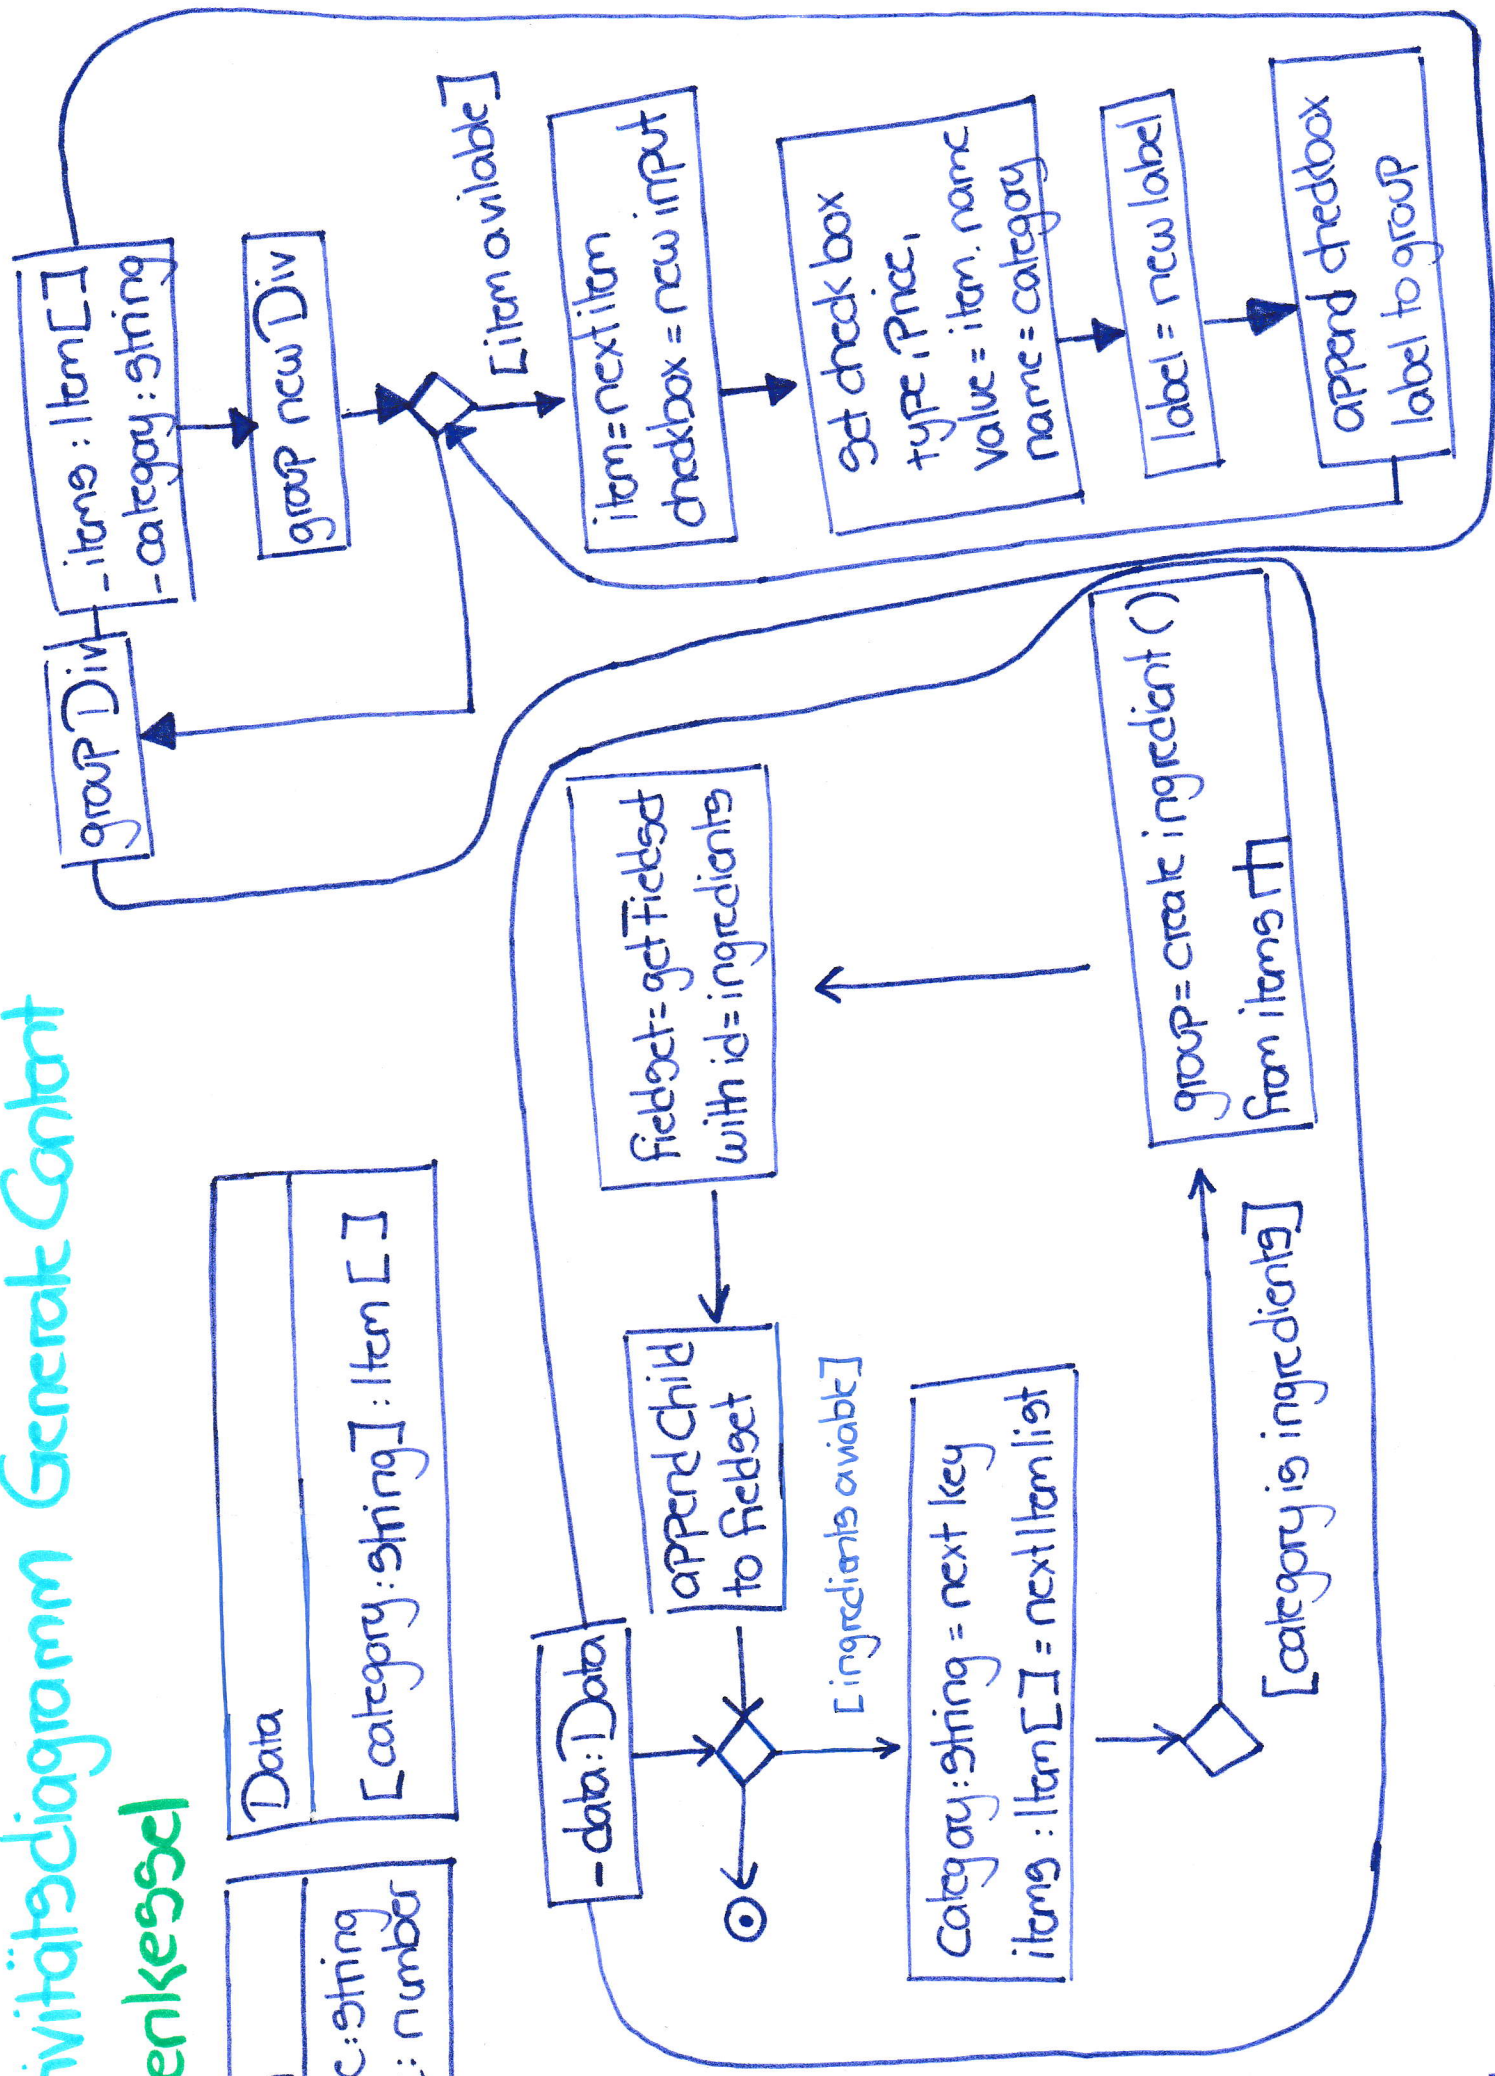 ivitätsdiagramm Generate Content
enkessel
e:string
: number
Data
[category:string]:Item[]
-data:Data
[ingredients aviable]
Category:string = next key
items:Item[]=nextItemlist
[category is ingredients]
group=create ingredient()
from items
fieldset=getFieldset
with id=ingredients
appendChild
to fieldset
groupDiv
-items:Item[]
-category:string
group newDiv
[item avilable]
item=nextitem
checkbox=new input
set checkbox
type:Price,
value=item.name
name=category
label=new label
append checkbox
label to group